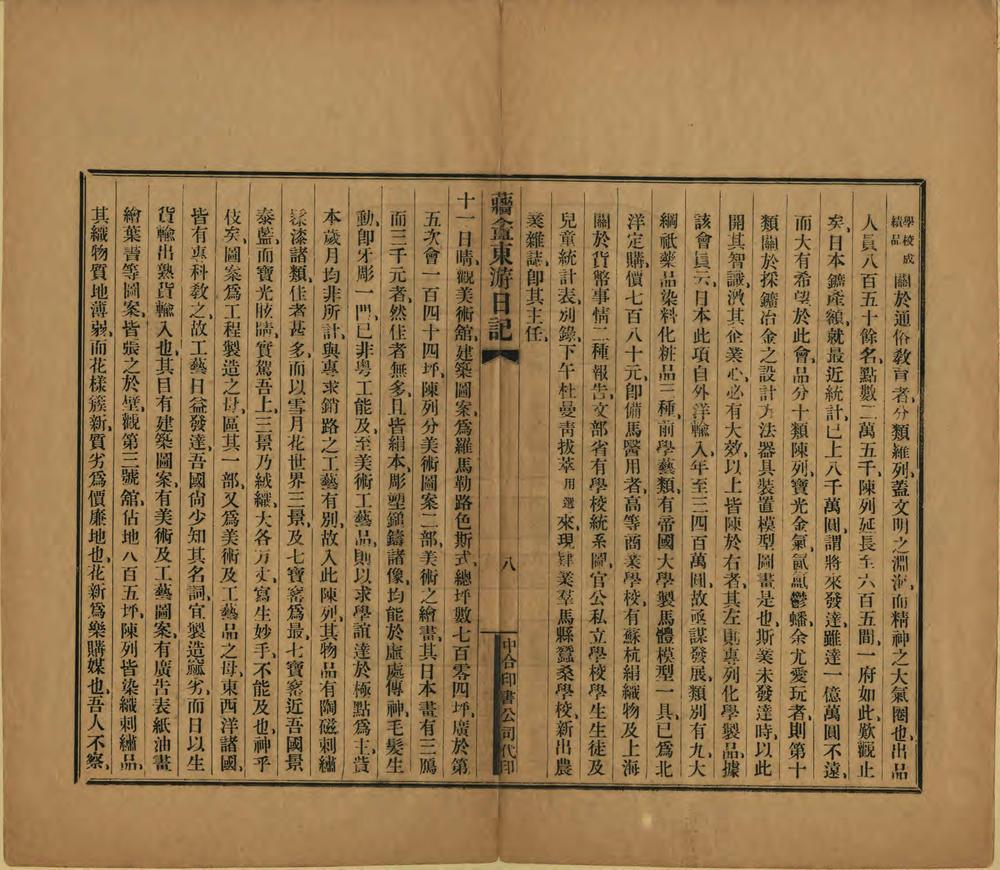 學校成績品關於通俗教育者、分類維列、蓋文明之淵海、而精神之大氣圈也、出品
人員八百五十餘名、點數二萬五千、陳列延長至六百五間、一府如此、歎觀止
矣、日本鑛產額、就最近統計、已上八千萬圓、謂將來發達、雖達一億萬圓不遠、
而大有希望於此會、品分十類陳列、寶光金氣、氤氳鬱蟠、余尤愛玩者、則第十
類關於採鑛冶金之設計方法器具裝置模型圖畫是也、斯業未發達時、以此
開其智識、濟其企業心、必有大效、以上皆陳於右者、其左則專列化學製品、據
該會員云、日本此項自外洋輸入、年至三四百萬圓、故亟謀發展、類別有九、大
綱祇藥品染料化粧品三種、前學藝類、有帝國大學製馬體模型一具、已爲北
洋定購、價七百八十元、即備馬醫用者、高等商業學校、有蘇杭絹織物及上海
關於貨幣事情二種報告、文部省有學校統系圖、官公私立學校學生生徒及
兒童統計表、別錄、下午杜曼青拔萃用選來、現肄業羣馬縣蠶桑學校、新出農
業雜誌、即其主任、
蘦盦東游日記
八
中合印書公司代印
十一日晴、觀美術舘、建築圖案、爲羅馬勒路色斯式、總坪數七百零四坪、廣於第
五次會一百四十四坪、陳列分美術圖案二部、美術之繪畫、其日本畫有三鴈
而三千元者、然佳者無多、且皆絹本、彫塑鎚鑄諸像、均能於虛處傳神、毛髮生
動、卽牙彫一門、已非粵工能及、至美術工藝品、則以求學誼達於極點爲主、貲
本歲月均非所計、與專求銷路之工藝有別、故入此陳列、其物品有陶磁刺繡
髹漆諸類、佳者甚多、而以雪月花世界三景、及七寶窰爲最、七寶窰近吾國景
泰藍、而寶光眩睛、實駕吾上、三景乃絨織、大各方丈、寫生妙手、不能及也、神乎
伎矣、圖案爲工程製造之母、區其一部、又爲美術及工藝品之母、東西洋諸國、
皆有專科敎之、故工藝日益發達、吾國尙少知其名詞、宜製造窳劣、而日以生
貨輸出熟貨輸入也、其目有建築圖案、有美術及工藝圖案、有廣告表紙油畫
繪葉書等圖案、皆張之於壁、觀第三號舘、佔地八百五坪、陳列皆染織刺繡品、
其織物質地薄弱、而花樣簇新、質劣爲價廉地也、花新爲樂購媒也、吾人不察、